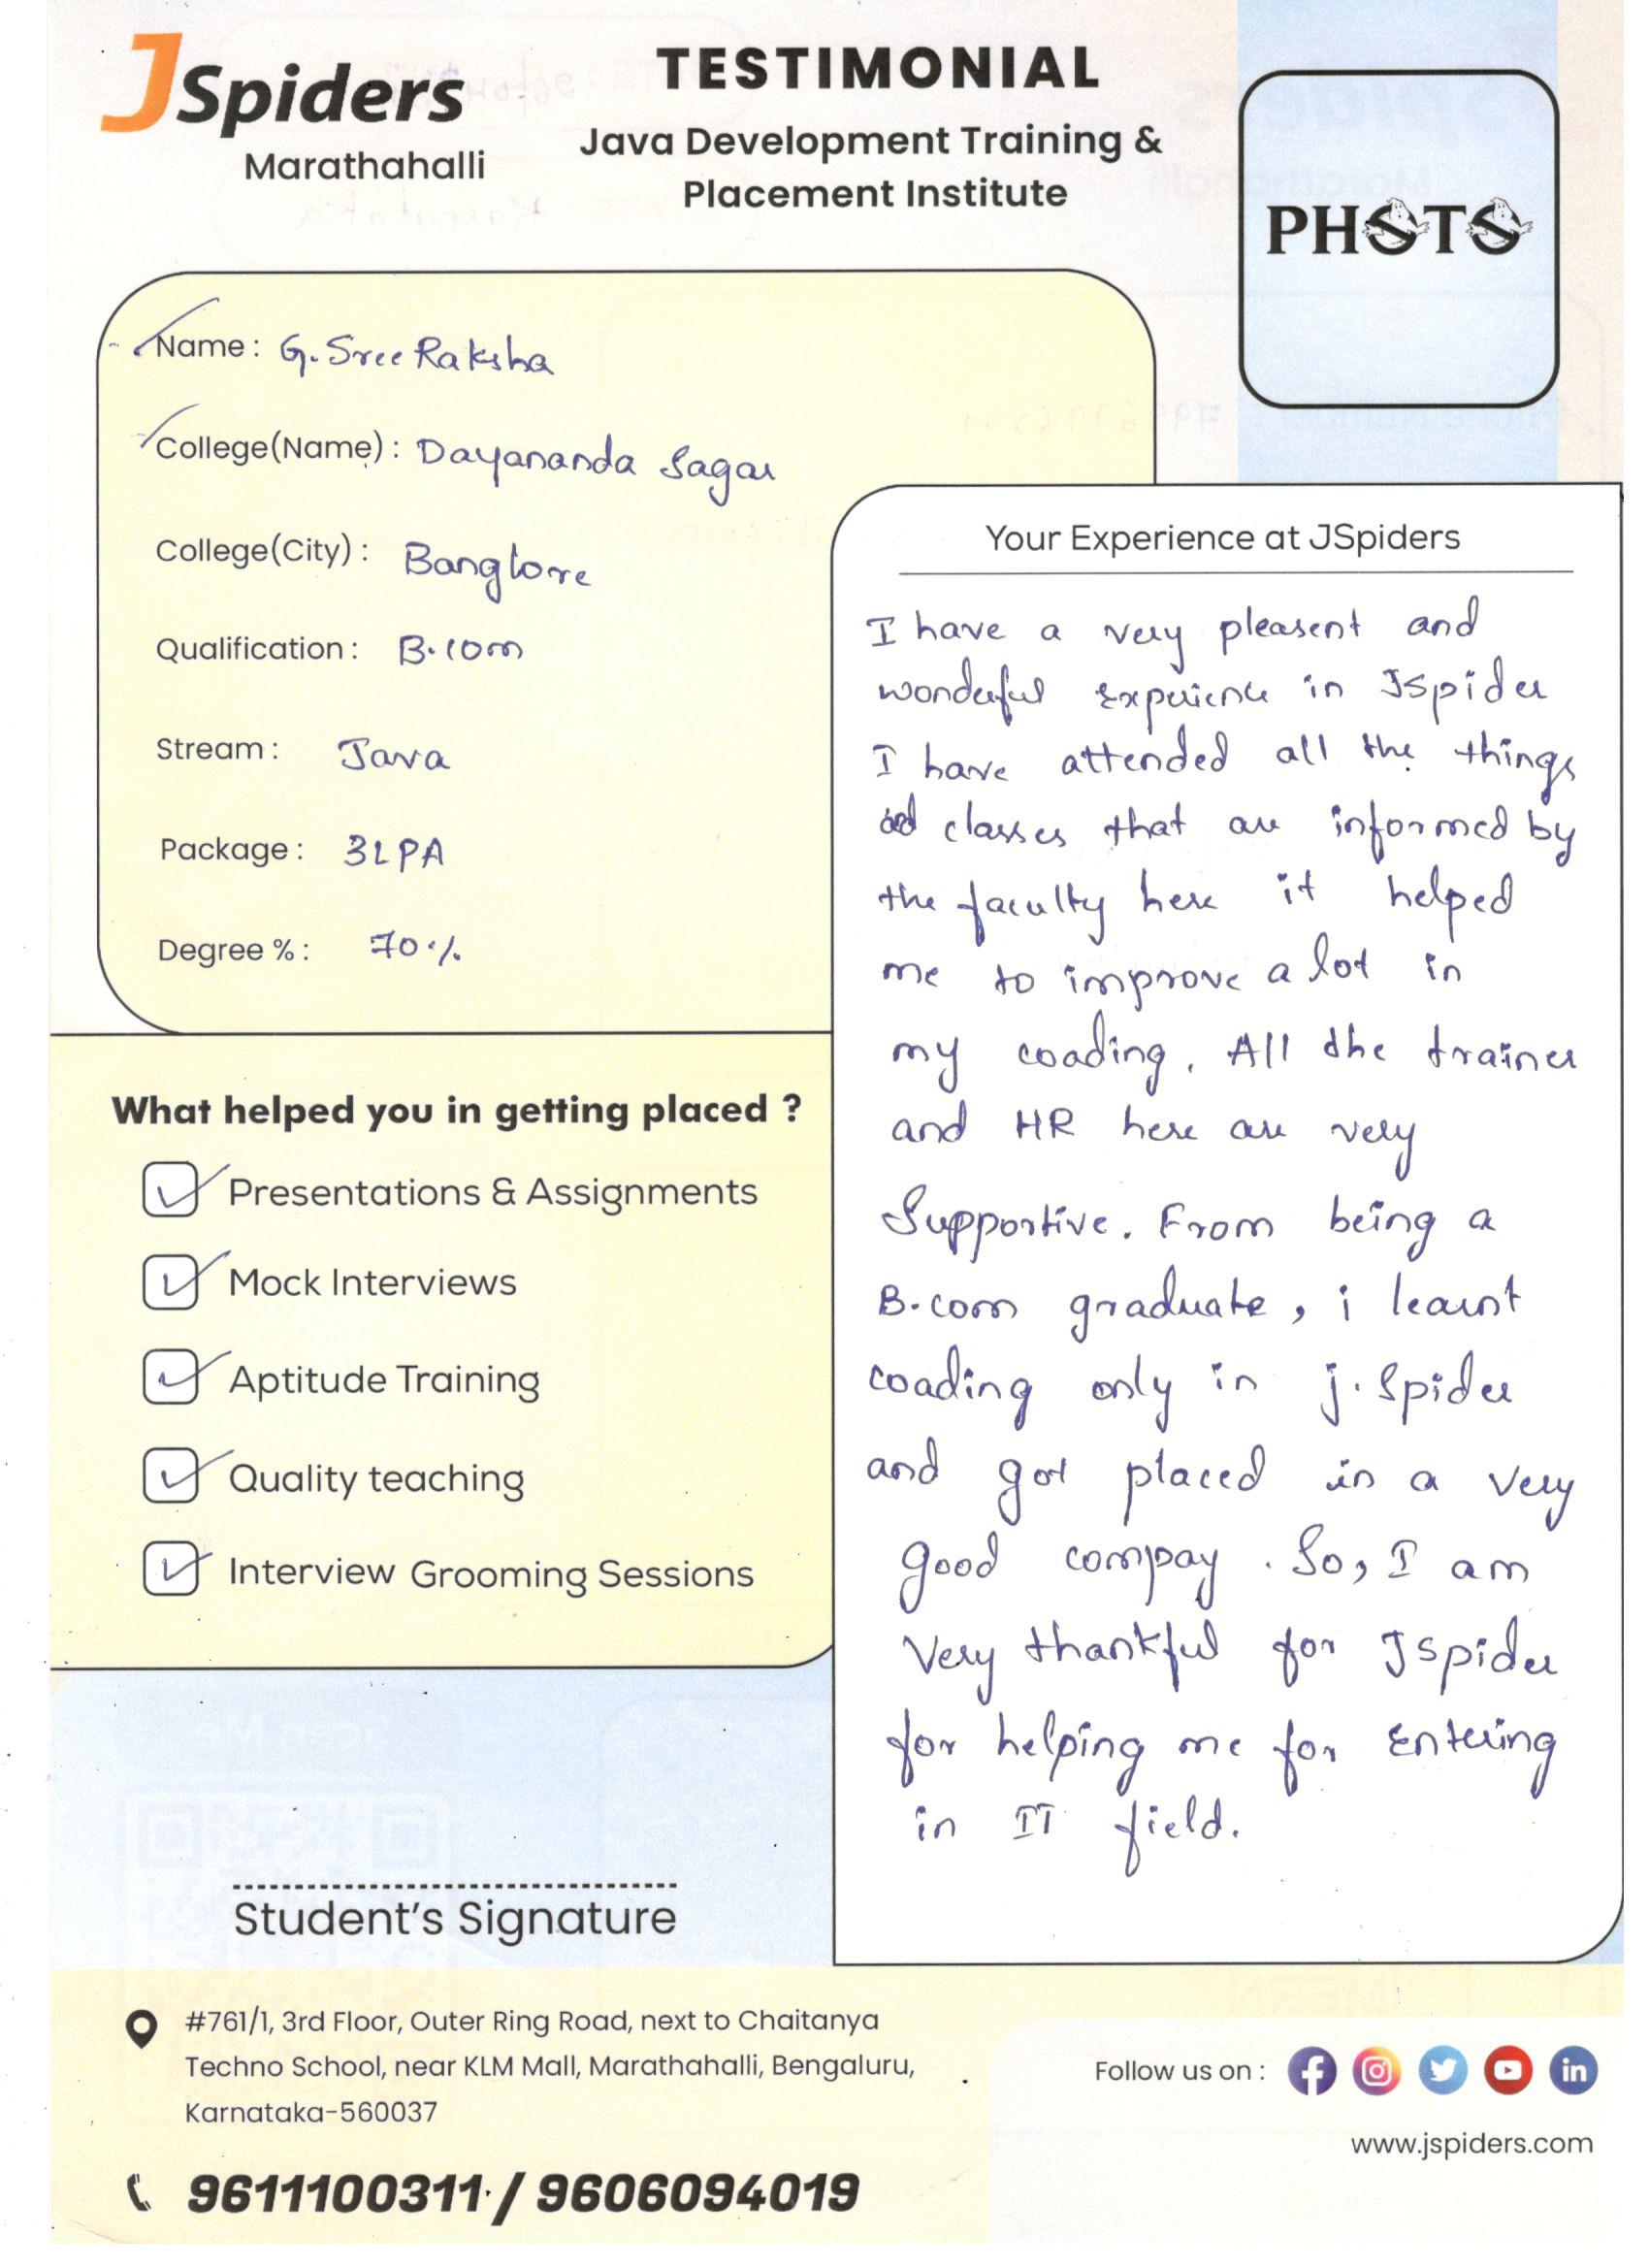 JSpiders
Marathahalli
TESTIMONIAL
Java Development Training &
Placement Institute
PHOTO
Name : G. Sree Raksha
College(Name) : Dayananda Sagar
College(City) : Banglore
Qualification : B.com
Stream : Java
Package : 3LPA
Degree % : 70%
What helped you in getting placed ?
Presentations & Assignments
Mock Interviews
Aptitude Training
Quality teaching
Interview Grooming Sessions
Student's Signature
Your Experience at JSpiders
I have a very pleasent and
wonderful experience in JSpider
I have attended all the things
and classes that are informed by
the faculty here it helped
me to improve a lot in
my coading. All the trainer
and HR here are very
Supportive. From being a
B.com graduate, i learnt
coading only in j.Spider
and got placed in a very
good compay. So, I am
Very thankful for JSpider
for helping me for Entering
in IT field.
#761/1, 3rd Floor, Outer Ring Road, next to Chaitanya
Techno School, near KLM Mall, Marathahalli, Bengaluru,
Karnataka-560037
9611100311 / 9606094019
Follow us on :
www.jspiders.com